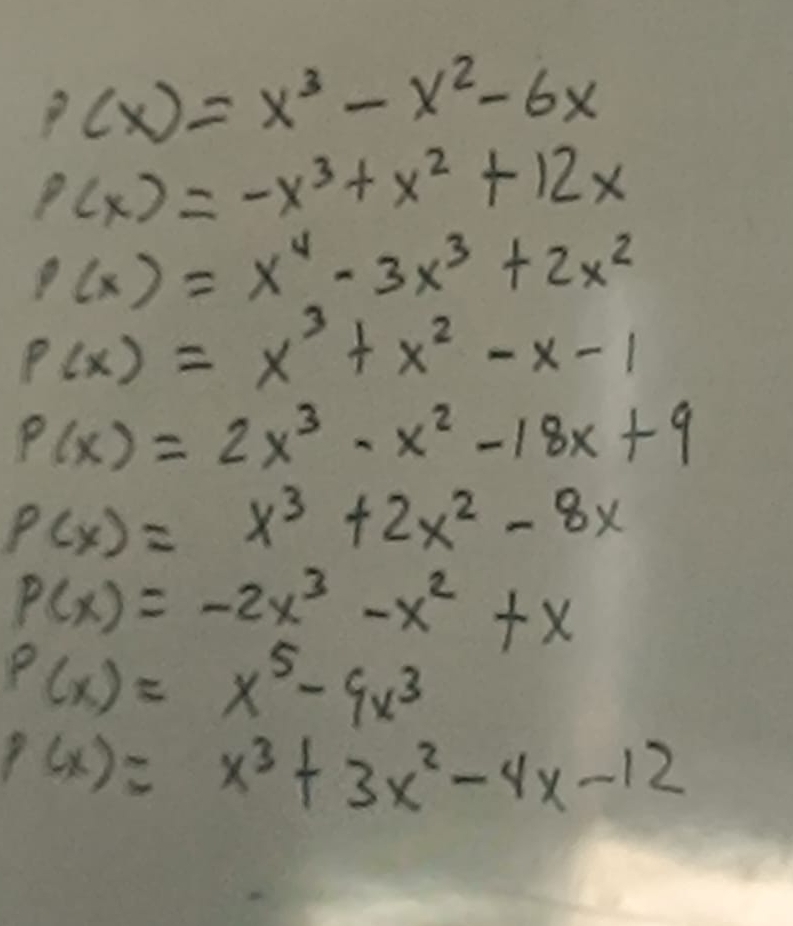 P(x) = x³ - x² - 6x
P(x) = -x³ + x² + 12x
P(x) = x⁴ - 3x³ + 2x²
P(x) = x³ + x² - x - 1
P(x) = 2x³ - x² - 18x + 9
P(x) = x³ + 2x² - 8x
P(x) = -2x³ - x² + x
P(x) = x⁵ - 9x³
P(x) = x³ + 3x² - 4x - 12